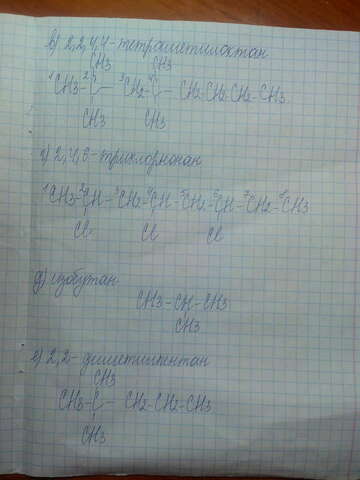 в) 2,2,4,4-тетраметилоктан
CH3 CH3
1CH3-2C-3CH2-4C-CH2-CH2-CH2-CH3
CH3 CH3
г) 2,4,6-трихлорнонан
1CH3-2CH-3CH2-4CH-5CH2-6CH-7CH2-8CH3
Cl Cl Cl
д) изобутан
CH3-CH-CH3
CH3
е) 2,2-диметилпентан
CH3
CH3-C-CH2-CH2-CH3
CH3